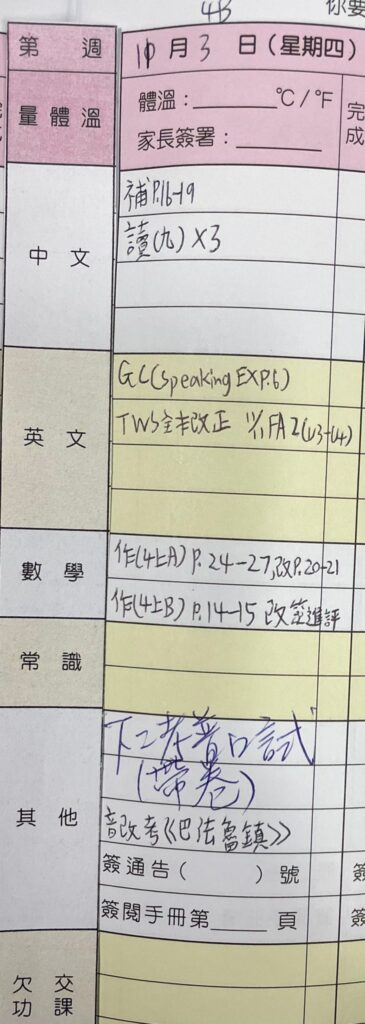 4B
你要
第 週
10月3日(星期四)
量體溫
體溫:________°C/°F
家長簽署:________
完成
中文
補P.16-19
讀(九)×3
英文
GC(Speaking EXP.6)
TWS全本改正 FA2(U3-U4)
數學
作(4上A) P.24-27,改P.20-21
作(4上B) P.14-15 改 簽進評
常識
其他
下二考普口試
(帶卷)
音改考《巴法魯鎮》
簽通告( )號
簽閱手冊第_____頁
欠交功課